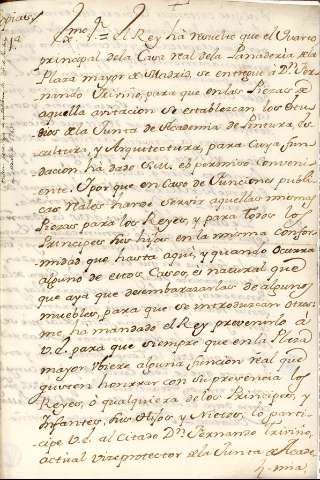 Exmo Sr El Rey há resuelto que el Quarto
principal de la Casa real de la Panaderia de la
Plaza mayor de Madrid, se entregue á Dn Fer-
nando Triviño, para que en las Piezas de
aquella avitación se establezcan los Estu-
dios de la Junta de Academia de Pintura, Es-
cultura, y Arquitectura, para cuya fun-
dación ha dado S.M. el permiso conveni-
ente. Y por que en caso de funciones publi-
cas Reales hande servir aquellas mismas
Piezas para los Reyes, y para todos los
Principes sus hijos en la misma confor-
midad que hasta aqui, y quando ocurra
alguno de estos casos, es natural que
que aya que desembarazarlas de algunos
muebles, para que se introduzcan otros;
me ha mandado el Rey prevenirlo á
V.E. para que siempre que en la Plaza
mayor ubiere alguna funcion real que
quieran honrrar con su presencia los
Reyes, ó qualquiera de los Principes, y
Infantes, sus Hijos, y Nietos, lo parti-
cipe V.E. al citado Dn Fernando Triviño,
actual vizeprotector de la Junta de Acade-
mia